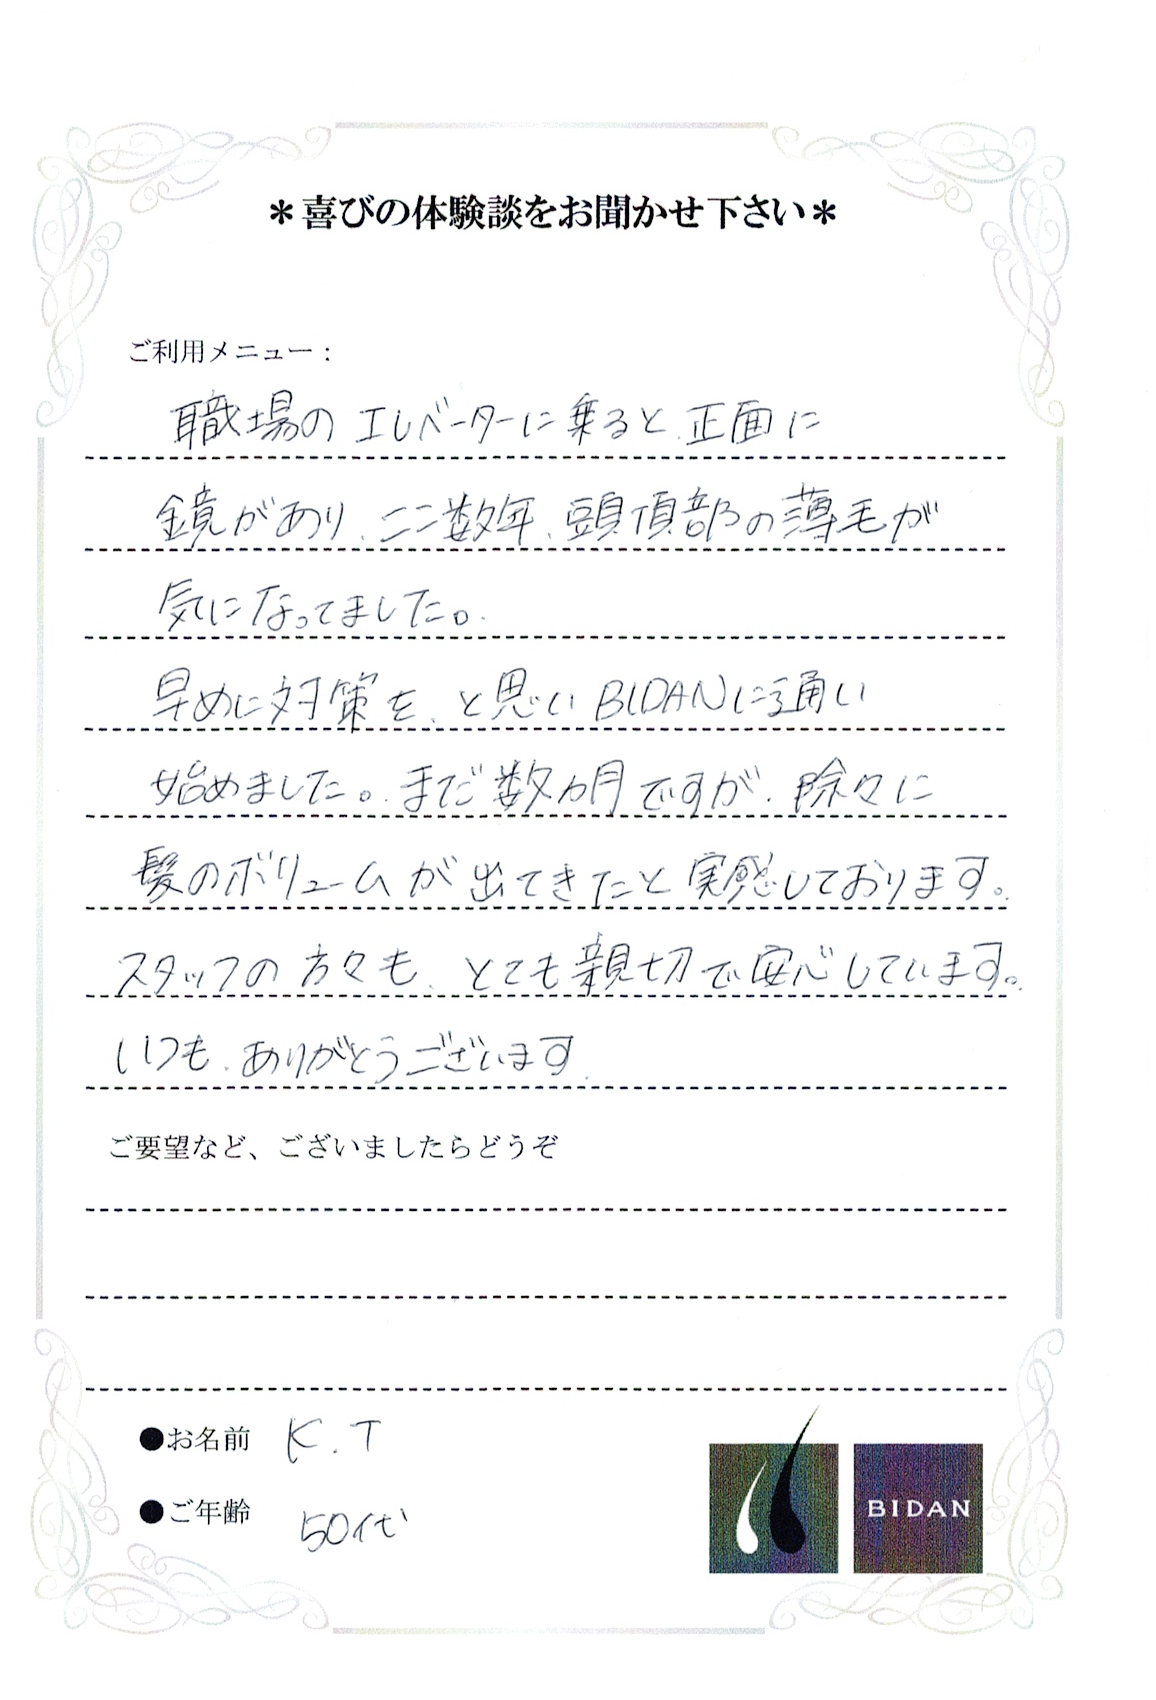 ＊喜びの体験談をお聞かせ下さい＊
ご利用メニュー：
職場のエレベーターに乗ると、正面に
鏡があり、ここ数年、頭頂部の薄毛が
気になってました。
早めに対策を、と思いBIDANに通い
始めました。まだ数カ月ですが、除々に
髪のボリュームが出てきたと実感しております。
スタッフの方々も、とても親切で安心しています。
いつも、ありがとうございます
ご要望など、ございましたらどうぞ
●お名前 K.T
●ご年齢 50代
BIDAN